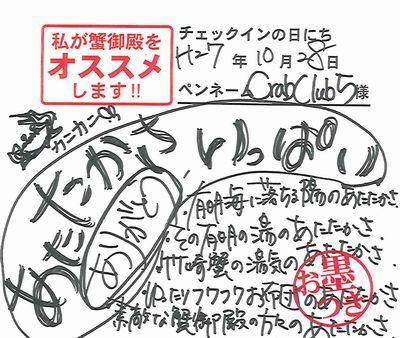 私が蟹御殿を
オススメ
します!!
チェックインの日にち
H27年10月28日
ペンネーム CrabClub5様
カニカニ
あたたかさいっぱい
ありがとう
・有明海に落ちる陽のあたたかさ
・その有明の湯のあたたかさ
・竹崎蟹の湯気のあたたかさ
・ゆったりフワフワお布団のあたたかさ
・素敵な蟹御殿の方々のあたたかさ
お墨つき